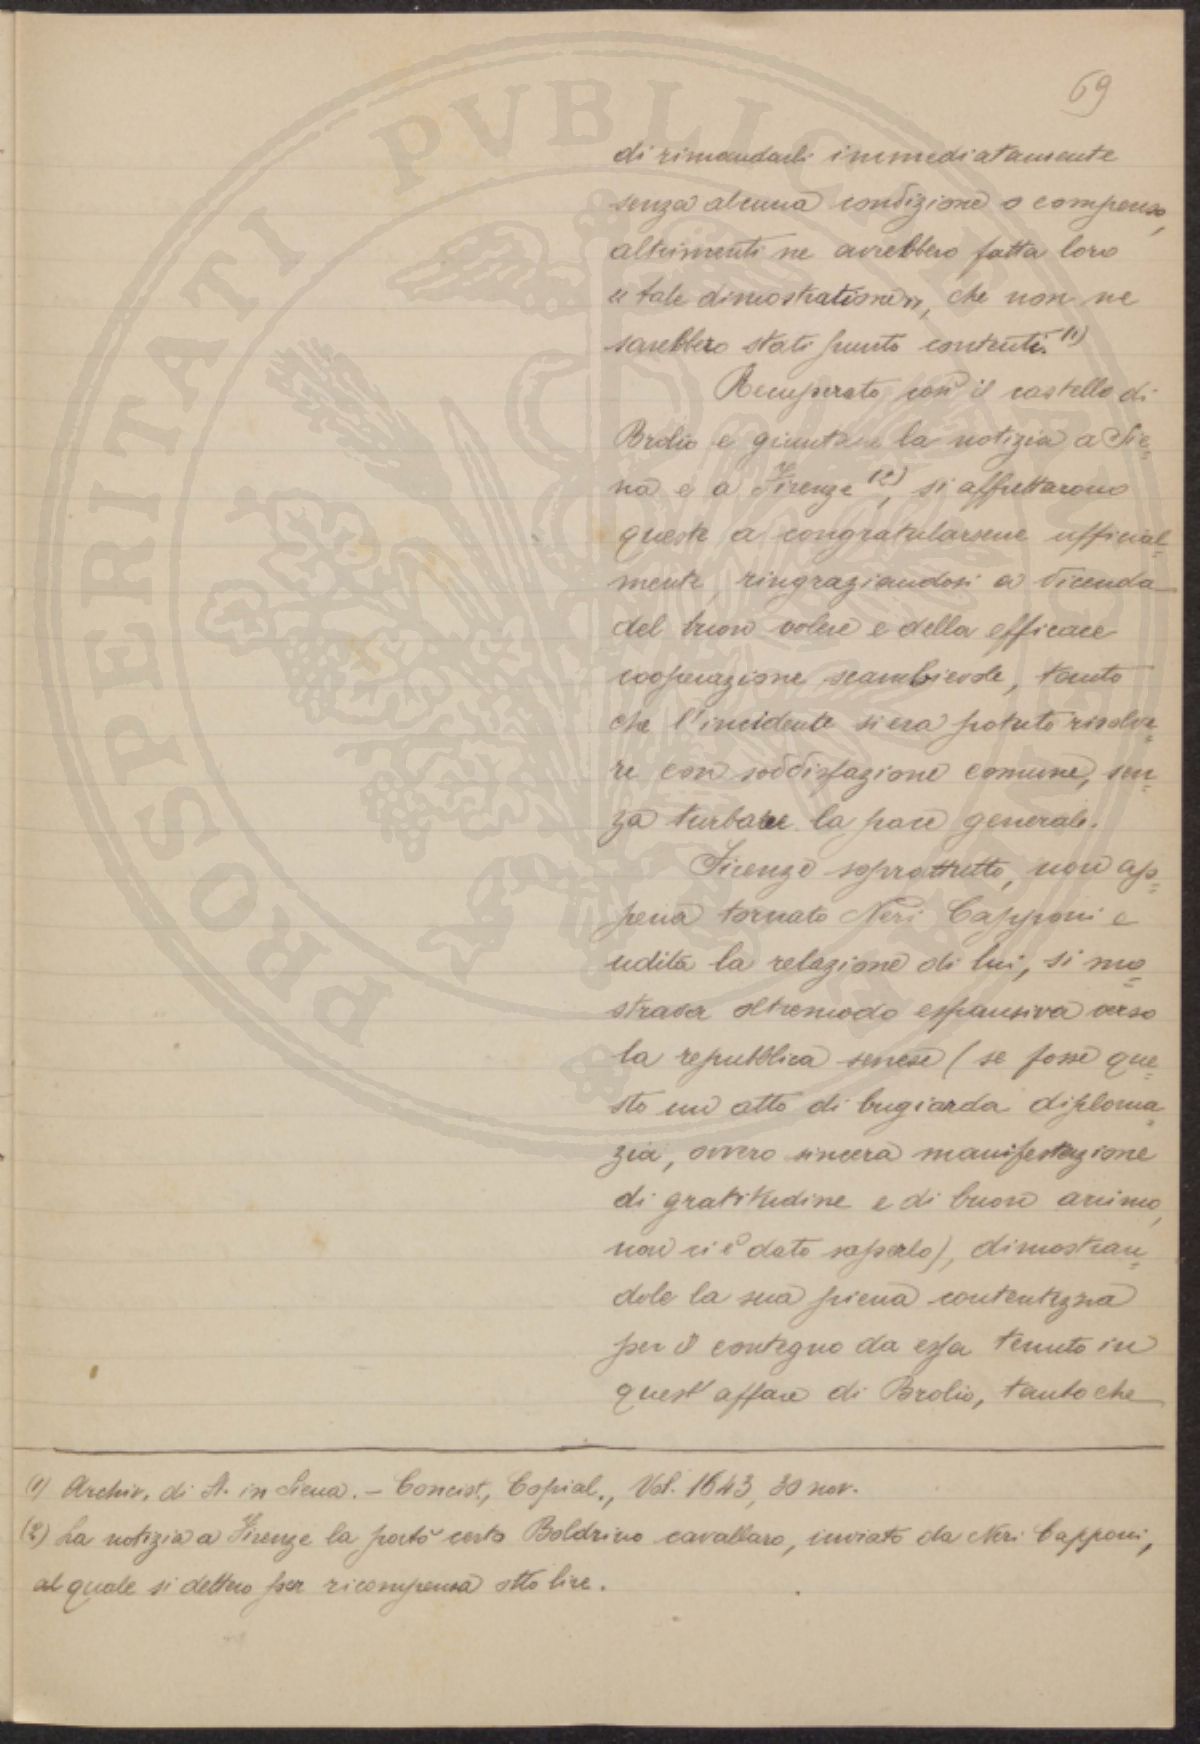 69
di rimandarli immediatamente
senza alcuna condizione o compenso,
altrimenti ne avrebbero fatta loro
"tale dimostratione", che non ne
sarebbero stati punto contenti. (1)
Recuperato così il castello di
Brolio e giunta ne la notizia a Sie=
na e a Firenze (2), si affrettarono
queste a congratularsene uffical=
mente, ringraziandosi a vicenda
del buon volere e della efficace
cooperazione scambievole, tanto
che l'incidente si era potuto risolve=
re con soddisfazione comune, sen=
za turbare la pace generale.
Firenze soprattutto, non ap=
pena tornato Neri Capponi e
udita la relazione di lui, si mo=
strava oltremodo espansiva verso
la repubblica senese (se fosse que=
sto un atto di bugiarda diploma=
zia, ovvero sincera manifestazione
di gratitudine e di buon animo,
non ci è dato saperlo), dimostran=
dole la sua piena contentezza
per il contegno da essa tenuto in
quest'affare di Brolio, tanto che
(1) Archiv. di St. in Siena. - Concist., Copial., Vol. 1643, 30 nov.
(2) La notizia a Firenze la portò certo Boldrino cavallaro, inviato da Neri Capponi,
al quale si dettero per ricompensa otto lire.
PROSPERITATI PVBLICAE